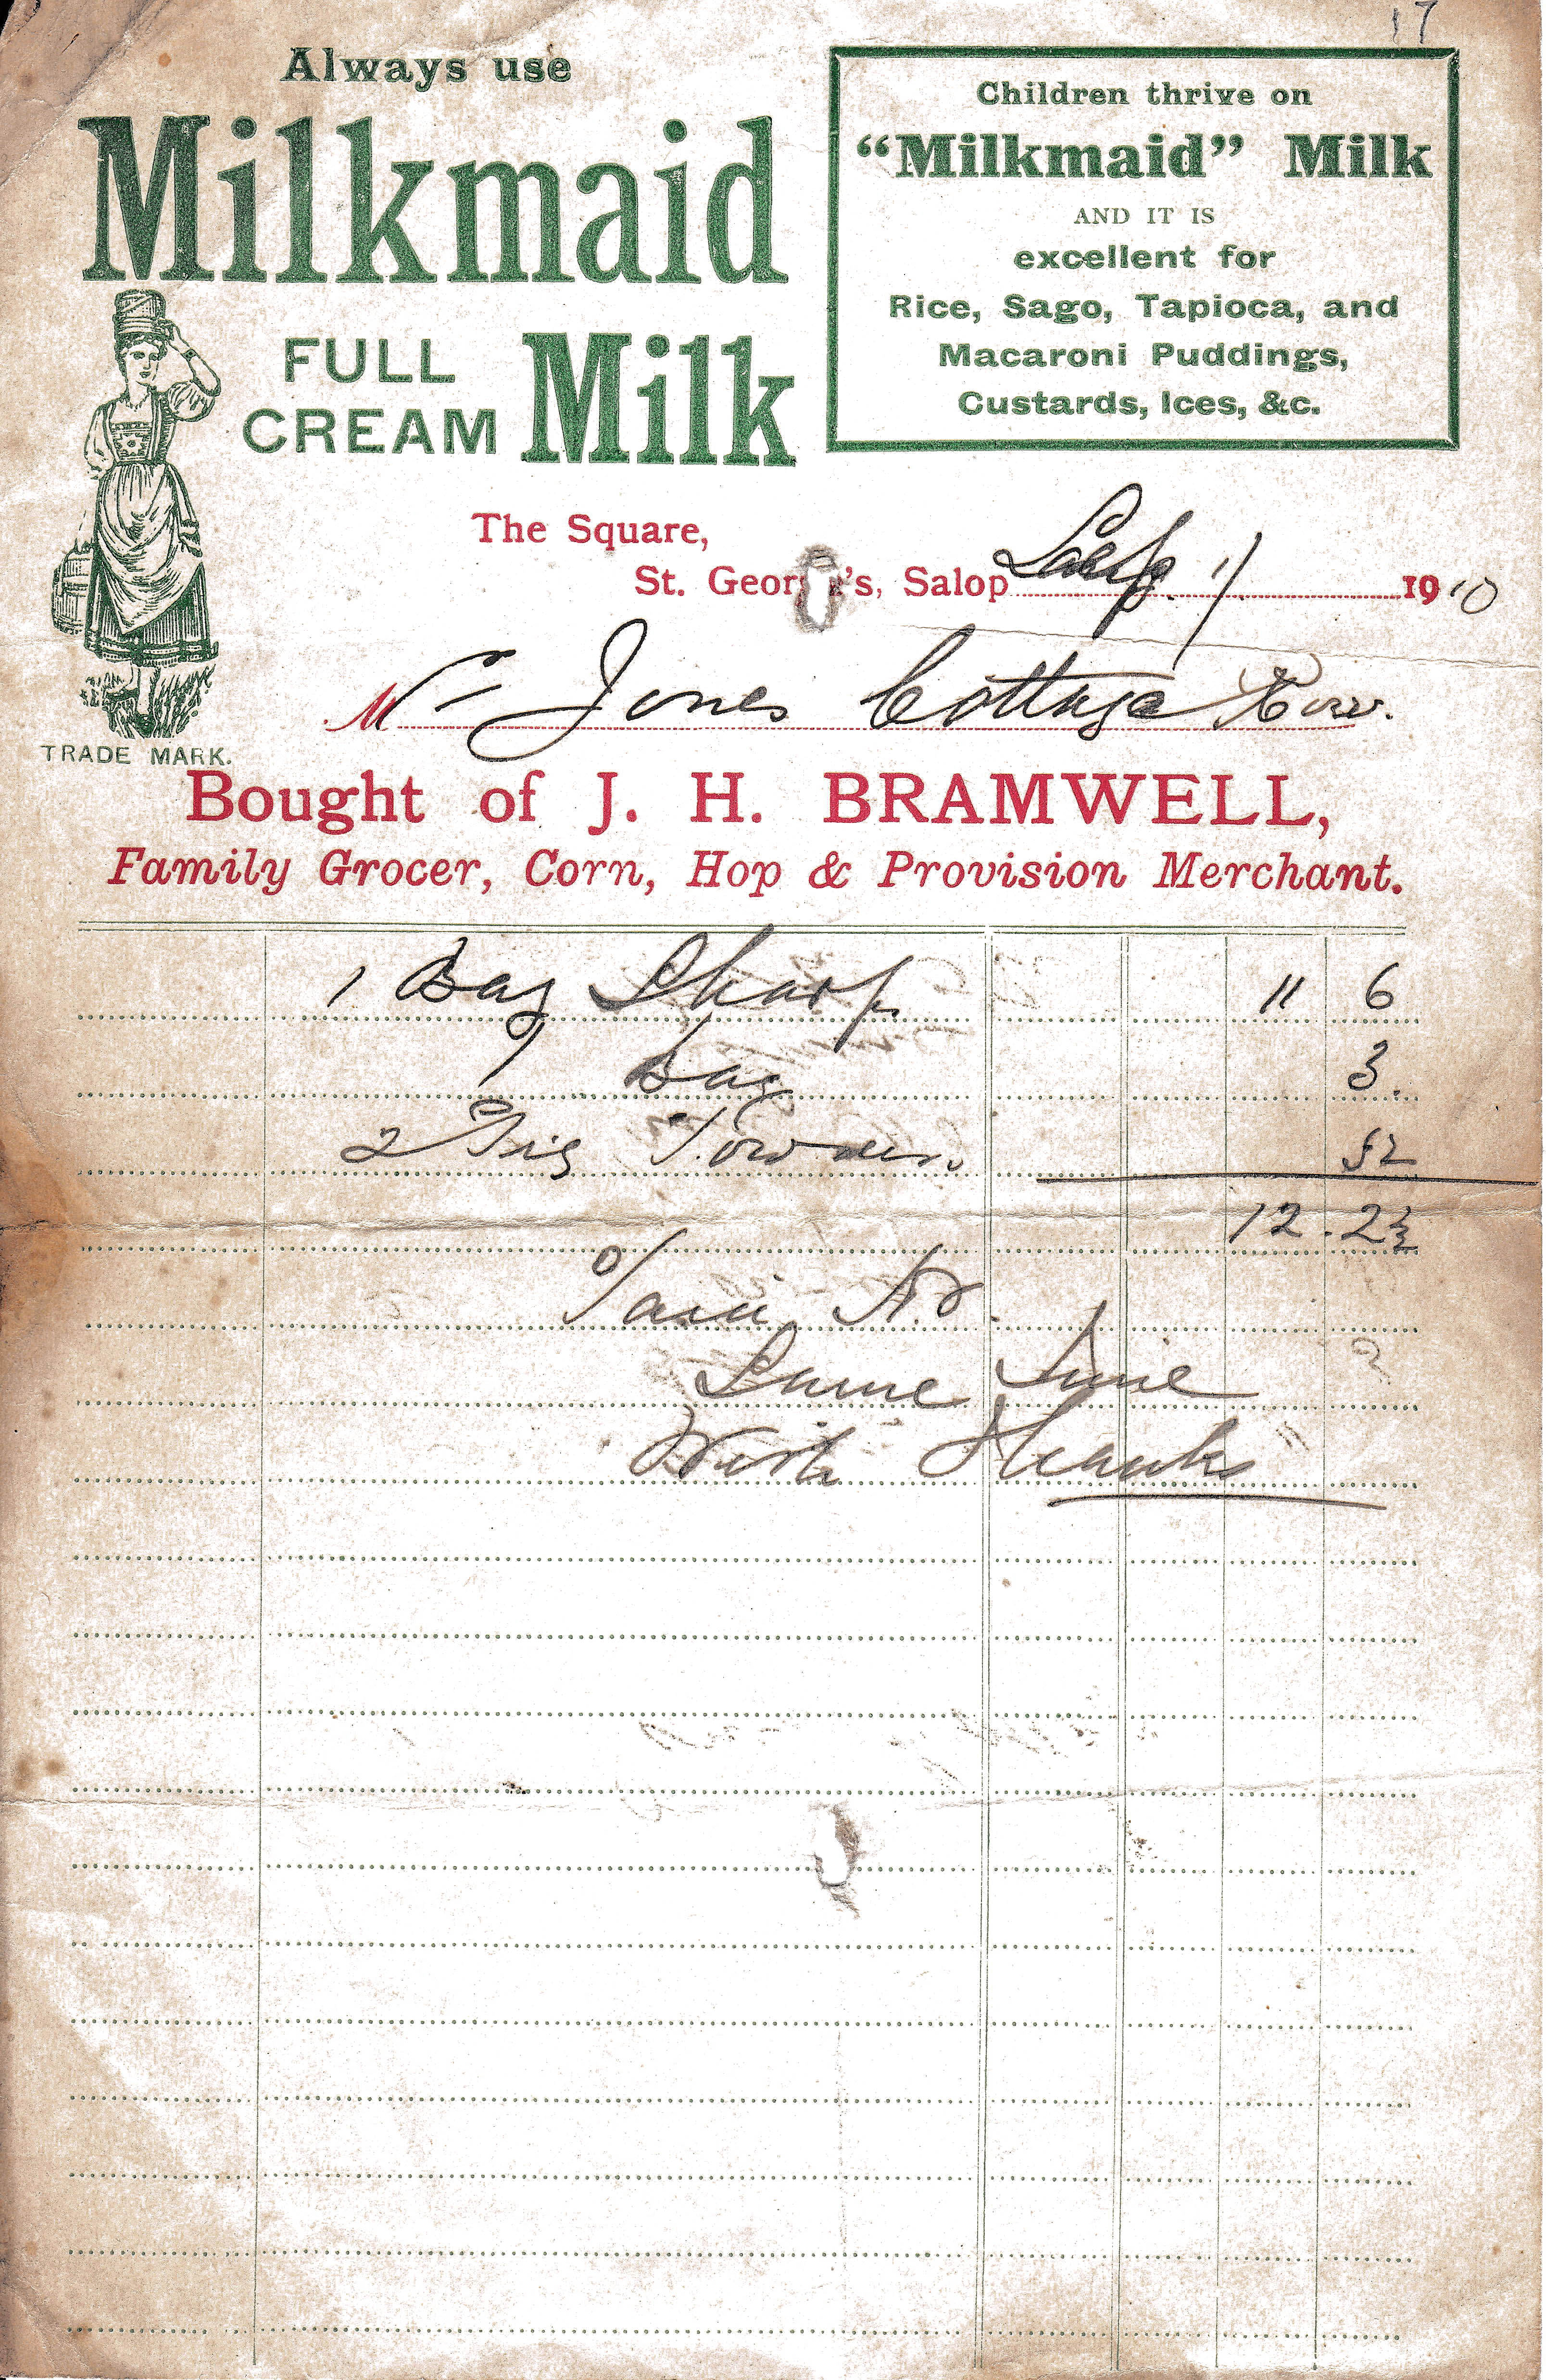 17
Always use
Milkmaid
FULL CREAM Milk
TRADE MARK.
Children thrive on
“Milkmaid” Milk
AND IT IS
excellent for
Rice, Sago, Tapioca, and
Macaroni Puddings,
Custards, Ices, &c.
The Square,
St. George's, Salop Sep. 1/ 1910
Mr Jones Cottage Row.
Bought of J. H. BRAMWELL,
Family Grocer, Corn, Hop & Provision Merchant.
1 Bag Sharps 11 6
1 Bag 3.
2 Pig Powders.
12 . 2½
Paid
Same Time
With Thanks